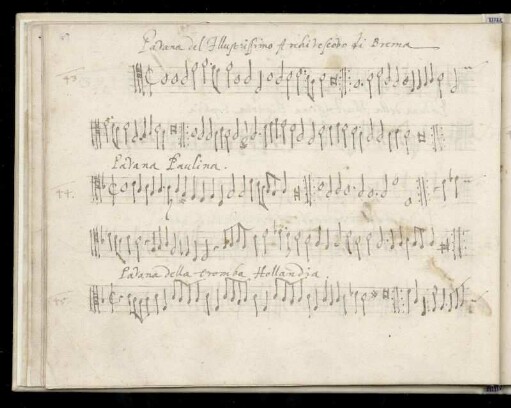 Pavana del Illustrissimo Archivescovo di Brema
43.
Pavana Paulina.
44.
Pavana della tromba Hollandia.
45.